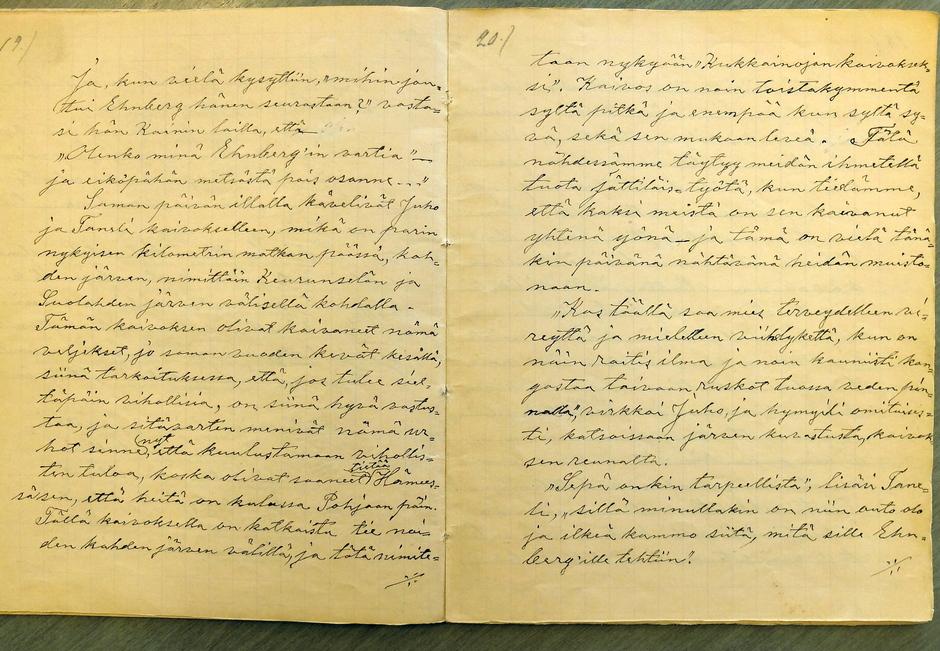 19.)
Ja, kun vielä kysyttiin, "mihin jou-
tui Ehnberg hänen seurastaan?" vasta-
si hän Kainin lailla, että
"Olenko minä Ehnberg'in vartia" —
ja eiköpähän metsästä pois osanne...."
Saman päivän illalla kävelivät Juho
ja Taneli kaivokselleen, mikä on parin
nykyisen kilometrin matkan päässä, kah-
den järven, nimittäin Keurunselän ja
Suolahden järven välisellä kohdalla.
Tämän kaivoksen olivat kaivaneet nämä
veljekset, jo saman vuoden kevät kesällä,
siinä tarkoituksessa, että, jos tulee siel-
täpäin vihollisia, on siinä hyvä vastus-
taa, ja sitävarten menivät nämä ur-
hot sinne nyt, että kuulustamaan vihollis-
ten tuloa, koska olivat saaneet tietää Hämees-
säsen, että heitä on kulussa Pohjaan päin.
Tällä kaivoksella on katkaistu tie näi-
den kahden järven välillä, ja tätä nimite-
20.)
taan nykyään "Kukkainojan kaivoksek-
si". Kaivos on noin toistakymmentä
syltä pitkä ja enempää kun syltä sy-
vä, sekä sen mukaan leveä. Tätä
nähdessämme täytyy meidän ihmetellä
tuota jättiläis-työtä, kun tiedämme,
että kaksi meistä on sen kaivanut
yhtenä yönä — ja tämä on vielä tänä-
kin päivänä nähtävänä heidän muisto-
naan.
"Kas täällä saa mies terveydelleen vi-
reyttä ja mielelleen viihdykettä, kun on
näin raitis ilma ja noin kauniisti kan-
gastaa taivaan ruskot tuossa veden pin-
nalla", virkkoi Juho, ja hymyili omituises-
ti, katsoissaan järven kuvastusta, kaivok-
sen reunalta.
"Sepä onkin tarpeellista", lisäsi Tane-
li, "sillä minullakin on niin outo olo
ja ilkeä kammo siitä, mitä sille Ehn-
berg'ille tehtiin!